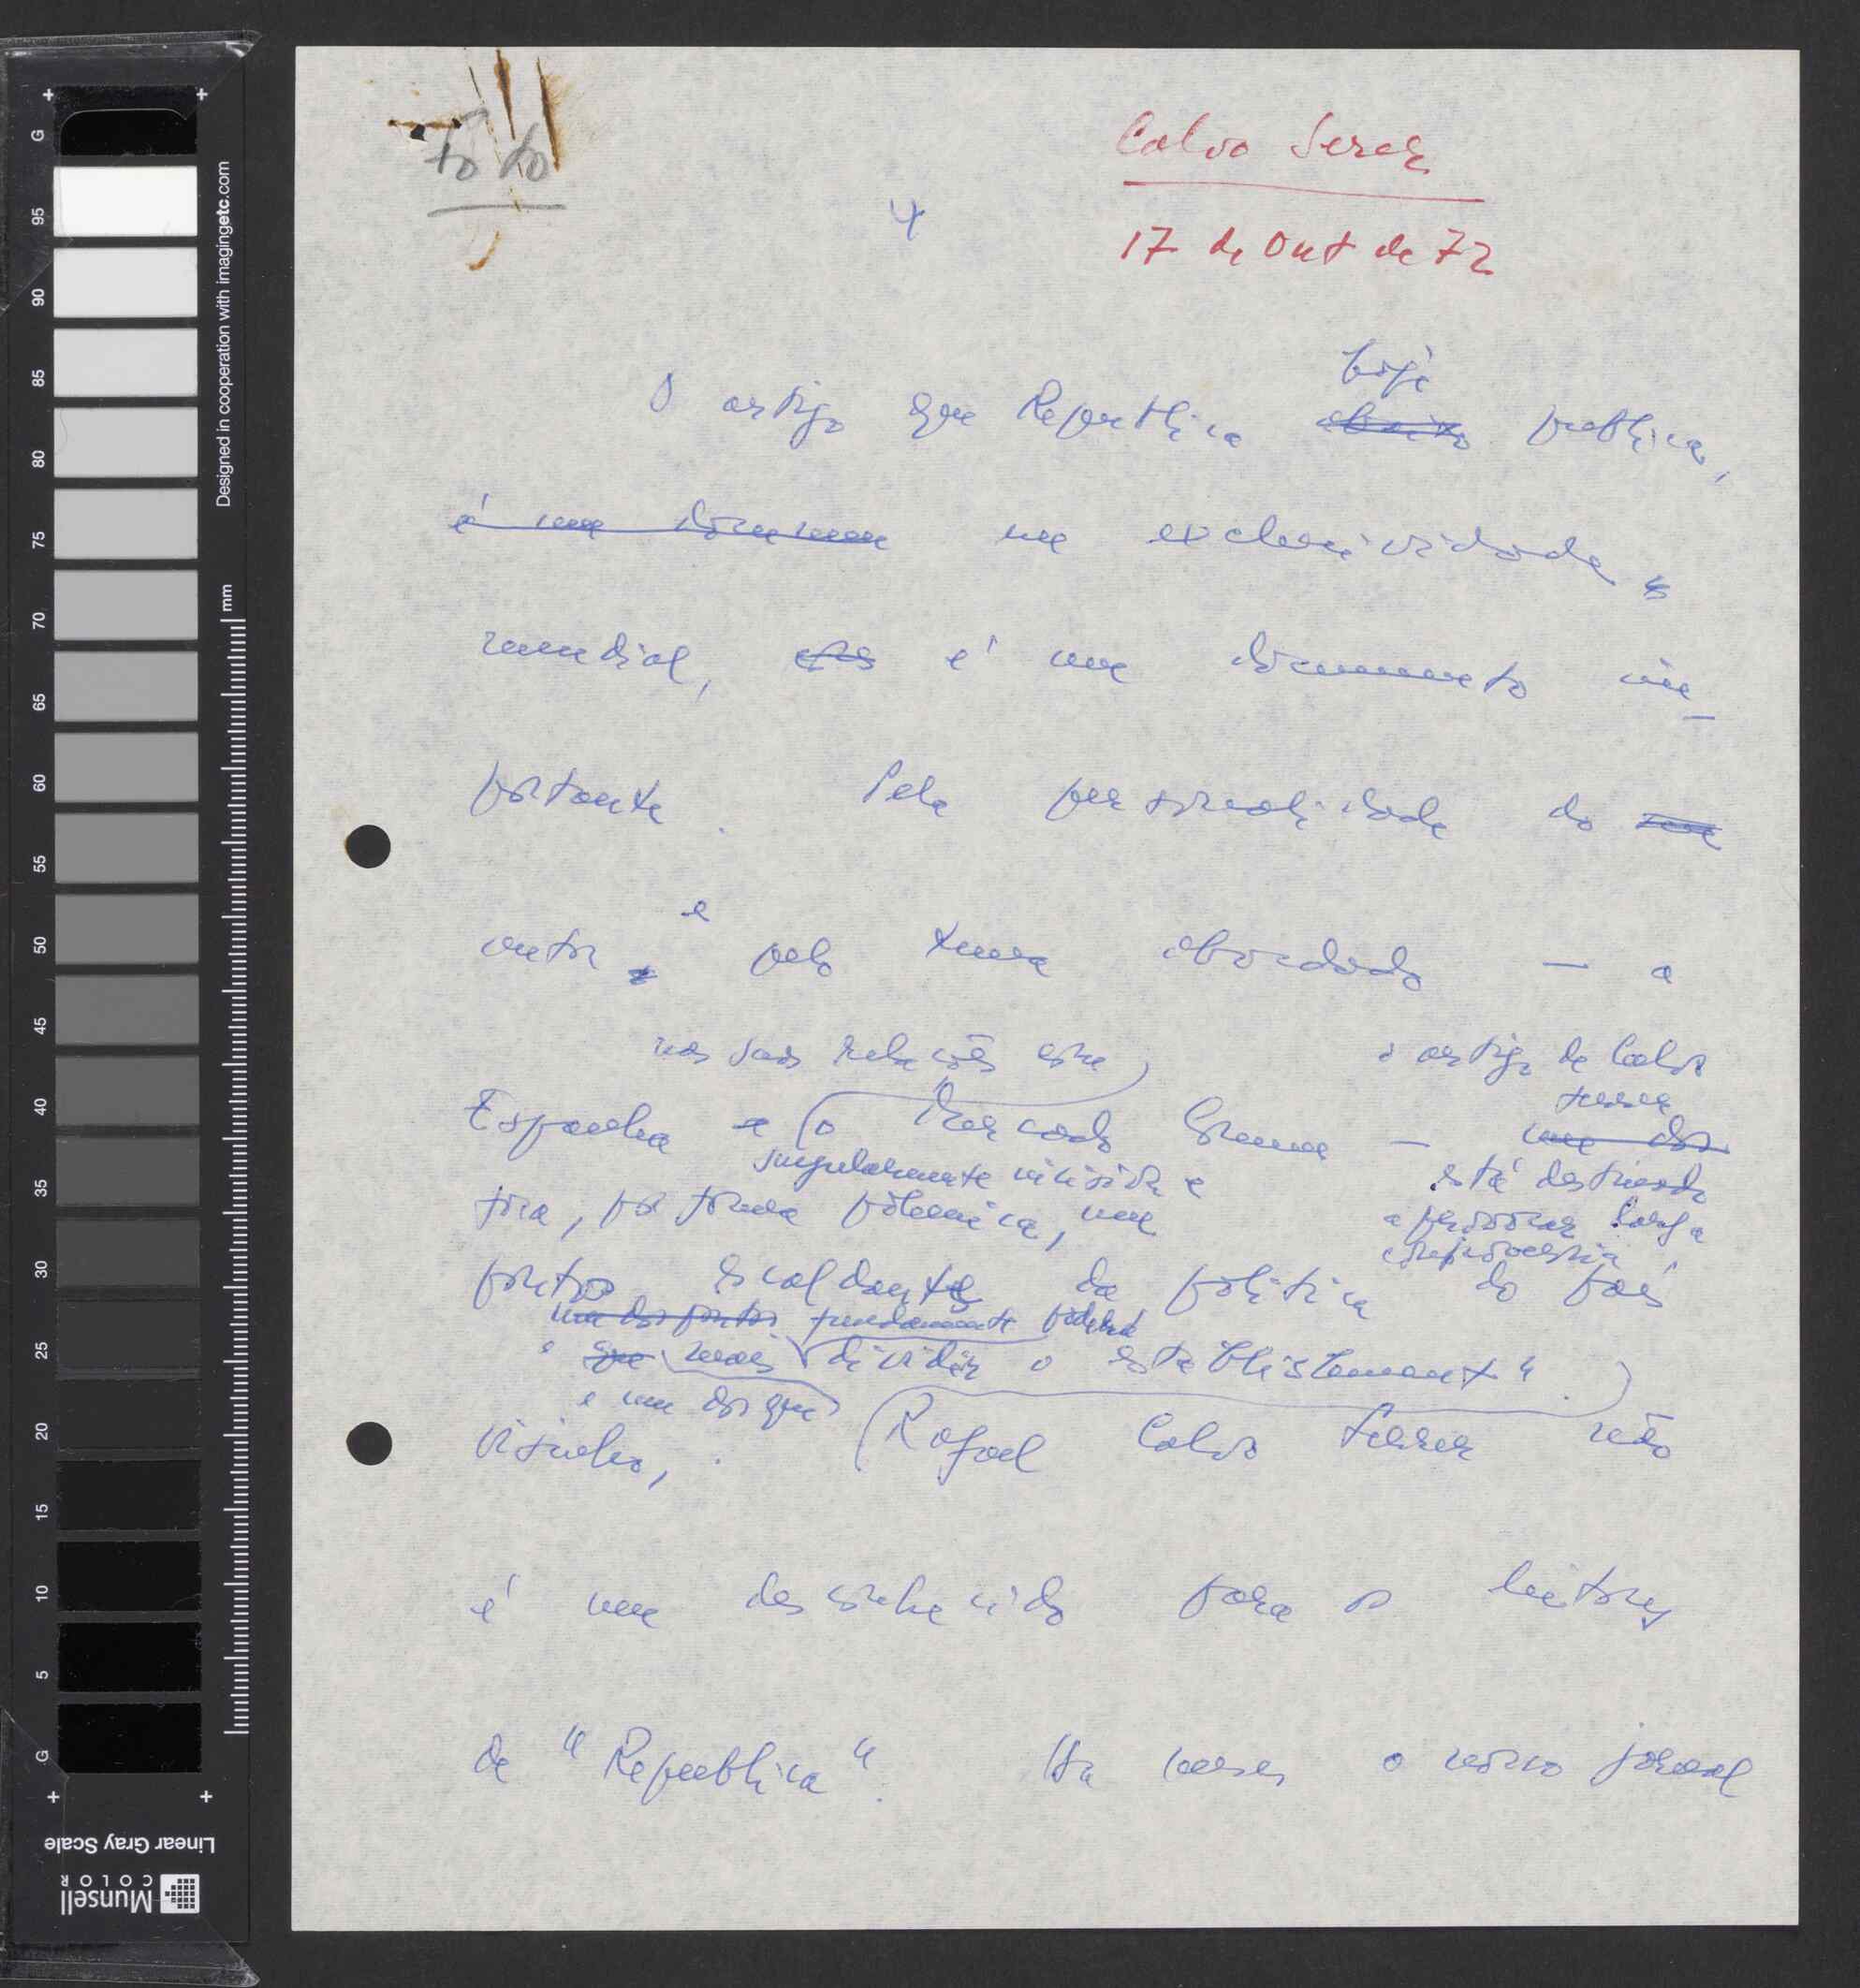 Calvo Serer
17 de Out de 72
4
hoje
O artigo que Republica abaixo publica,
é um documen em exclusividade
mundial, é um documento im-
portante. Pela personalidade do
e
autor pelo tema abordado — a
nas suas relações com o artigo de Calvo
Serer
Espanha e o Mercado Comum — um dos
singularmente incisiva e está destinado
foca, por forma polémica, um a provocar larga
controvérsia
pontos escaldantes da política do país
um dos pontos fundamente poderá
que mais dividir o establishement".
e um dos que
vizinho, . Rafael Calvo Serrer não
é um desconhecido para os leitores
de "Republica". Ha meses o nosso jornal
Designed in cooperation with imagingetc.com
mm
G 95 90 85 80 75 70 65 60 55 50 45 40 35 30 25 20 15 10 5 G
Linear Gray Scale
Munsell
COLOR